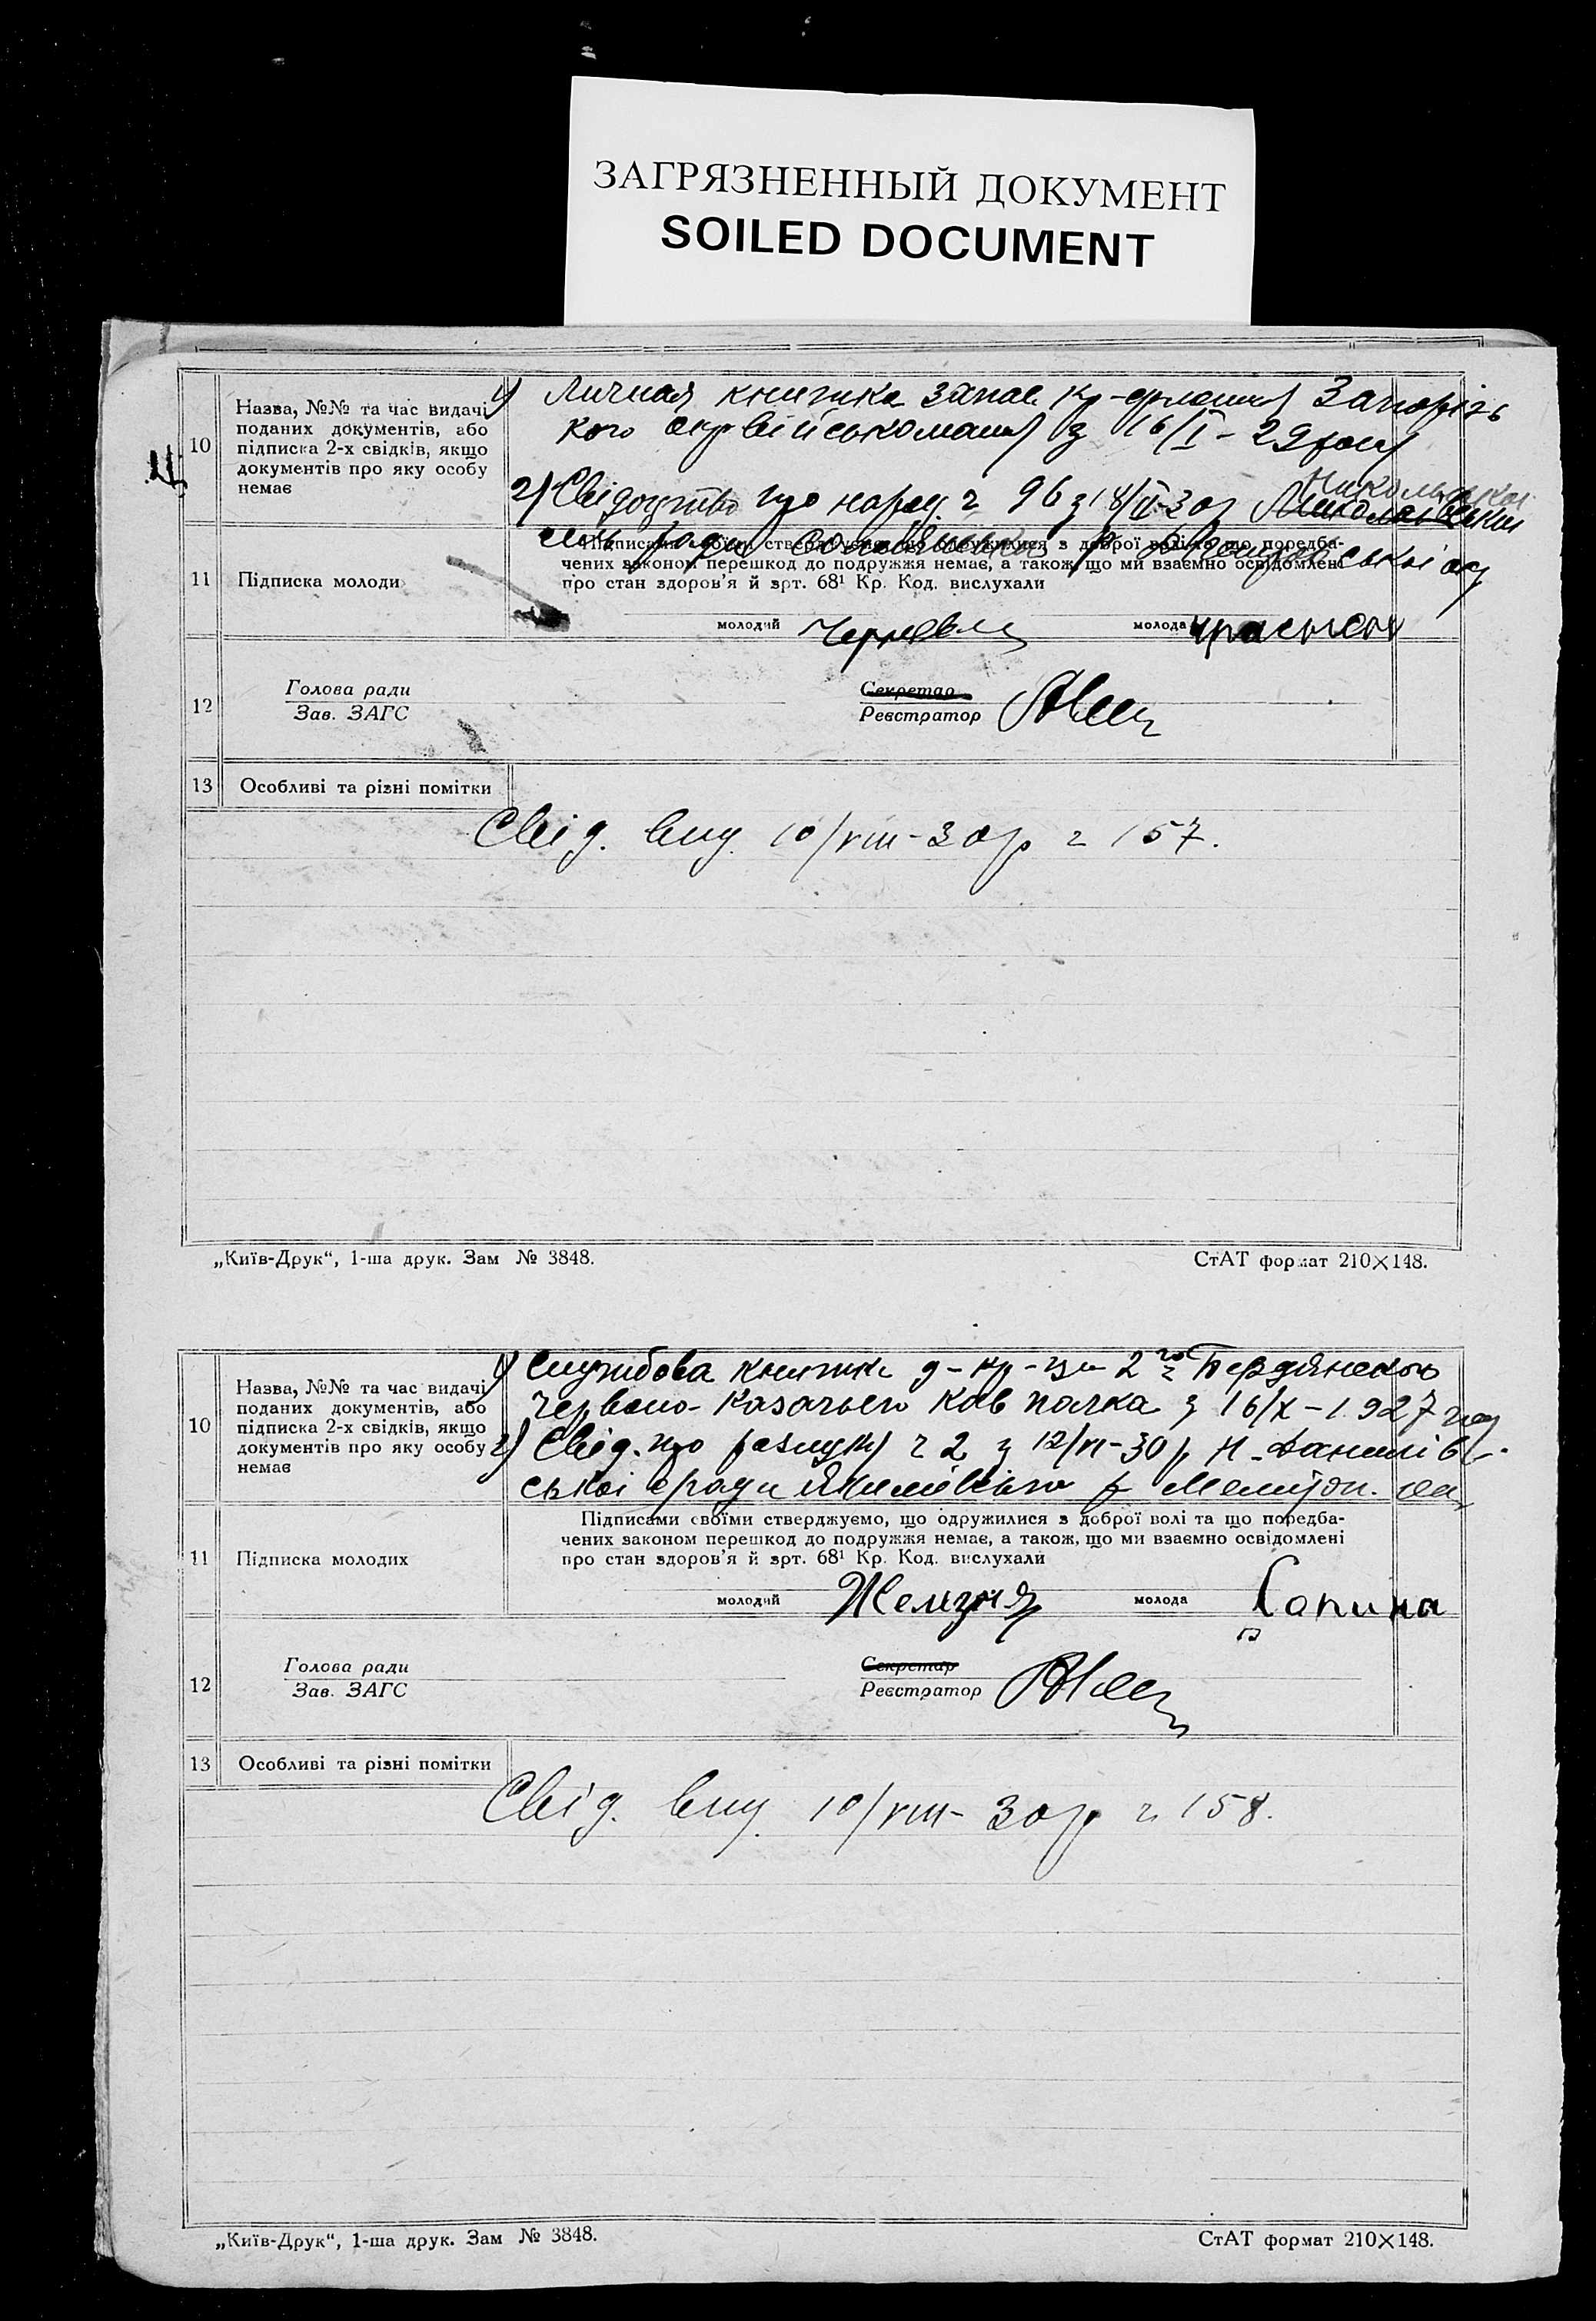 ЗАГРЯЗНЕННЫЙ ДОКУМЕНТ
SOILED DOCUMENT
10
Назва, №№ та час видачі поданих документів, або підписка 2-х свідків, якщо документів про яку особу немає
1) Личная книжка запас Запорізь
кого з 16/I-29 року
2) Свідоцтво про народ ч 96 з 18/II-30р
11
Підписка молоди
Підписами своїми стверджуємо, що одружилися з доброї волі та що поредба-
чених законом перешкод до подружжя немає, а також, що ми взаємно освідомлені
про стан здоров'я й зрт. 68¹ Кр. Код. вислухали
молодий молода
12
Голова ради
Зав. ЗАГС
Секретар
Реєстратор
13
Особливі та різні помітки
Свід. вид. 10/VIII-30р ч 157.
„Київ-Друк“, 1-ша друк. Зам № 3848.
СтАТ формат 210×148.
10
Назва, №№ та час видачі
поданих документів, або
підписка 2-х свідків, якщо
документів про яку особу
немає
1) Службова книжка 2го Бердянского
Червоно-Казачьего Кав полка з 16/X-1927
2) Свід. про ч 2 з 12/VI-30р Н-Данилів
ської с ради Якимівського р Мелитоп.
11
Підписка молодих
Підписами своїми стверджуємо, що одружилися з доброї волі та що поредба-
чених законом перешкод до подружжя немає, а також, що ми взаємно освідомлені
про стан здоров'я й зрт. 68¹ Кр. Код. вислухали
молодий молода Сапина
12
Голова ради
Зав. ЗАГС
Секретар
Реєстратор
13
Особливі та різні помітки
Свід. вид. 10/VIII-30р ч 158.
„Київ-Друк“, 1-ша друк. Зам № 3848.
СтАТ формат 210×148.